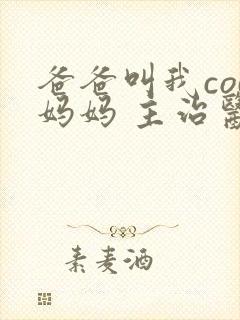 爸爸叫我co
妈妈 主治
素麦酒